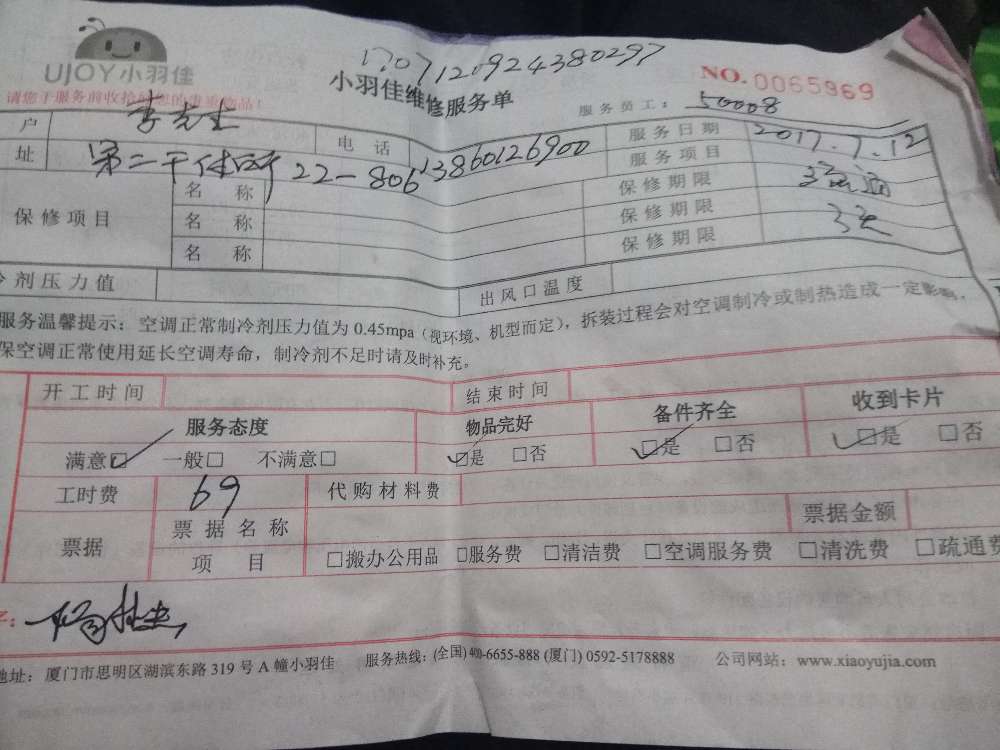 UJOY小羽佳
1707120924380297
小羽佳维修服务单
NO.0065969
请您于服务前收拾好您的贵重物品!
服务员工: 50008
户 李先生 电话 13860126900 服务日期 2017.7.12
址 第二干休所 22-806 服务项目
保修项目 名称 保修期限
名称 保修期限 3天
名称 保修期限
冷剂压力值 出风口温度
服务温馨提示: 空调正常制冷剂压力值为 0.45mpa (视环境、机型而定), 拆装过程会对空调制冷或制热造成一定影响,
保空调正常使用延长空调寿命, 制冷剂不足时请及时补充。
开工时间 结束时间
服务态度 物品完好 备件齐全 收到卡片
满意☑ 一般□ 不满意□ ☑是 □否 ☑是 □否 ☑是 □否
工时费 69 代购材料费
票据 票据名称 票据金额
项目 □搬办公用品 □服务费 □清洁费 □空调服务费 □清洗费 □疏通费
地址: 厦门市思明区湖滨东路 319 号 A 幢小羽佳 服务热线: (全国) 400-6655-888 (厦门) 0592-5178888 公司网站: www.xiaoyujia.com